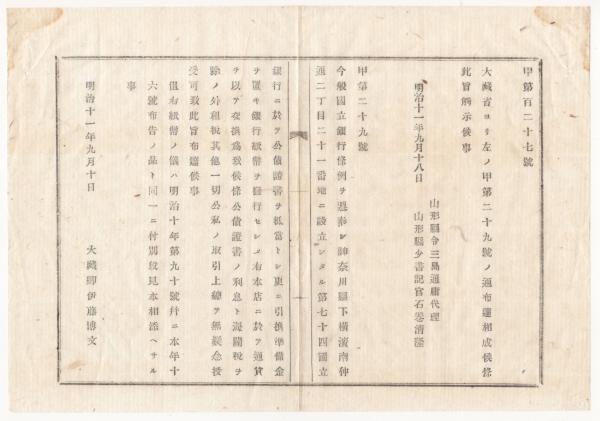 甲第百二十七號
大藏省ヨリ左ノ甲第二十九號ノ通布達相成候條
此旨布示候事
明治十一年九月十八日
山形縣令三島通庸代理
山形縣少書記官石卷清隆
甲第二十九號
今般國立銀行條例ヲ遵奉シ神奈川縣下橫濱南仲
通二丁目二十一番地ニ設立シタル第七十四國立
銀行ニ於テ公債證書ヲ抵當トシ更ニ引換準備金
ヲ置キ銀行紙幣ヲ發行セシメ右本店ニ於テ通貨
ヲ以テ交換爲致候條公債證書ノ利息ト海關稅ヲ
除ノ外租稅其他一切公私ノ取引上總テ無疑念授
受可致此旨布達候事
但右紙幣ノ儀ハ明治十年第九十號幷ニ本年十
六號布告ノ品ト同一ニ付別段見本相添ヘサル
事
明治十一年九月十日
大藏卿伊藤博文